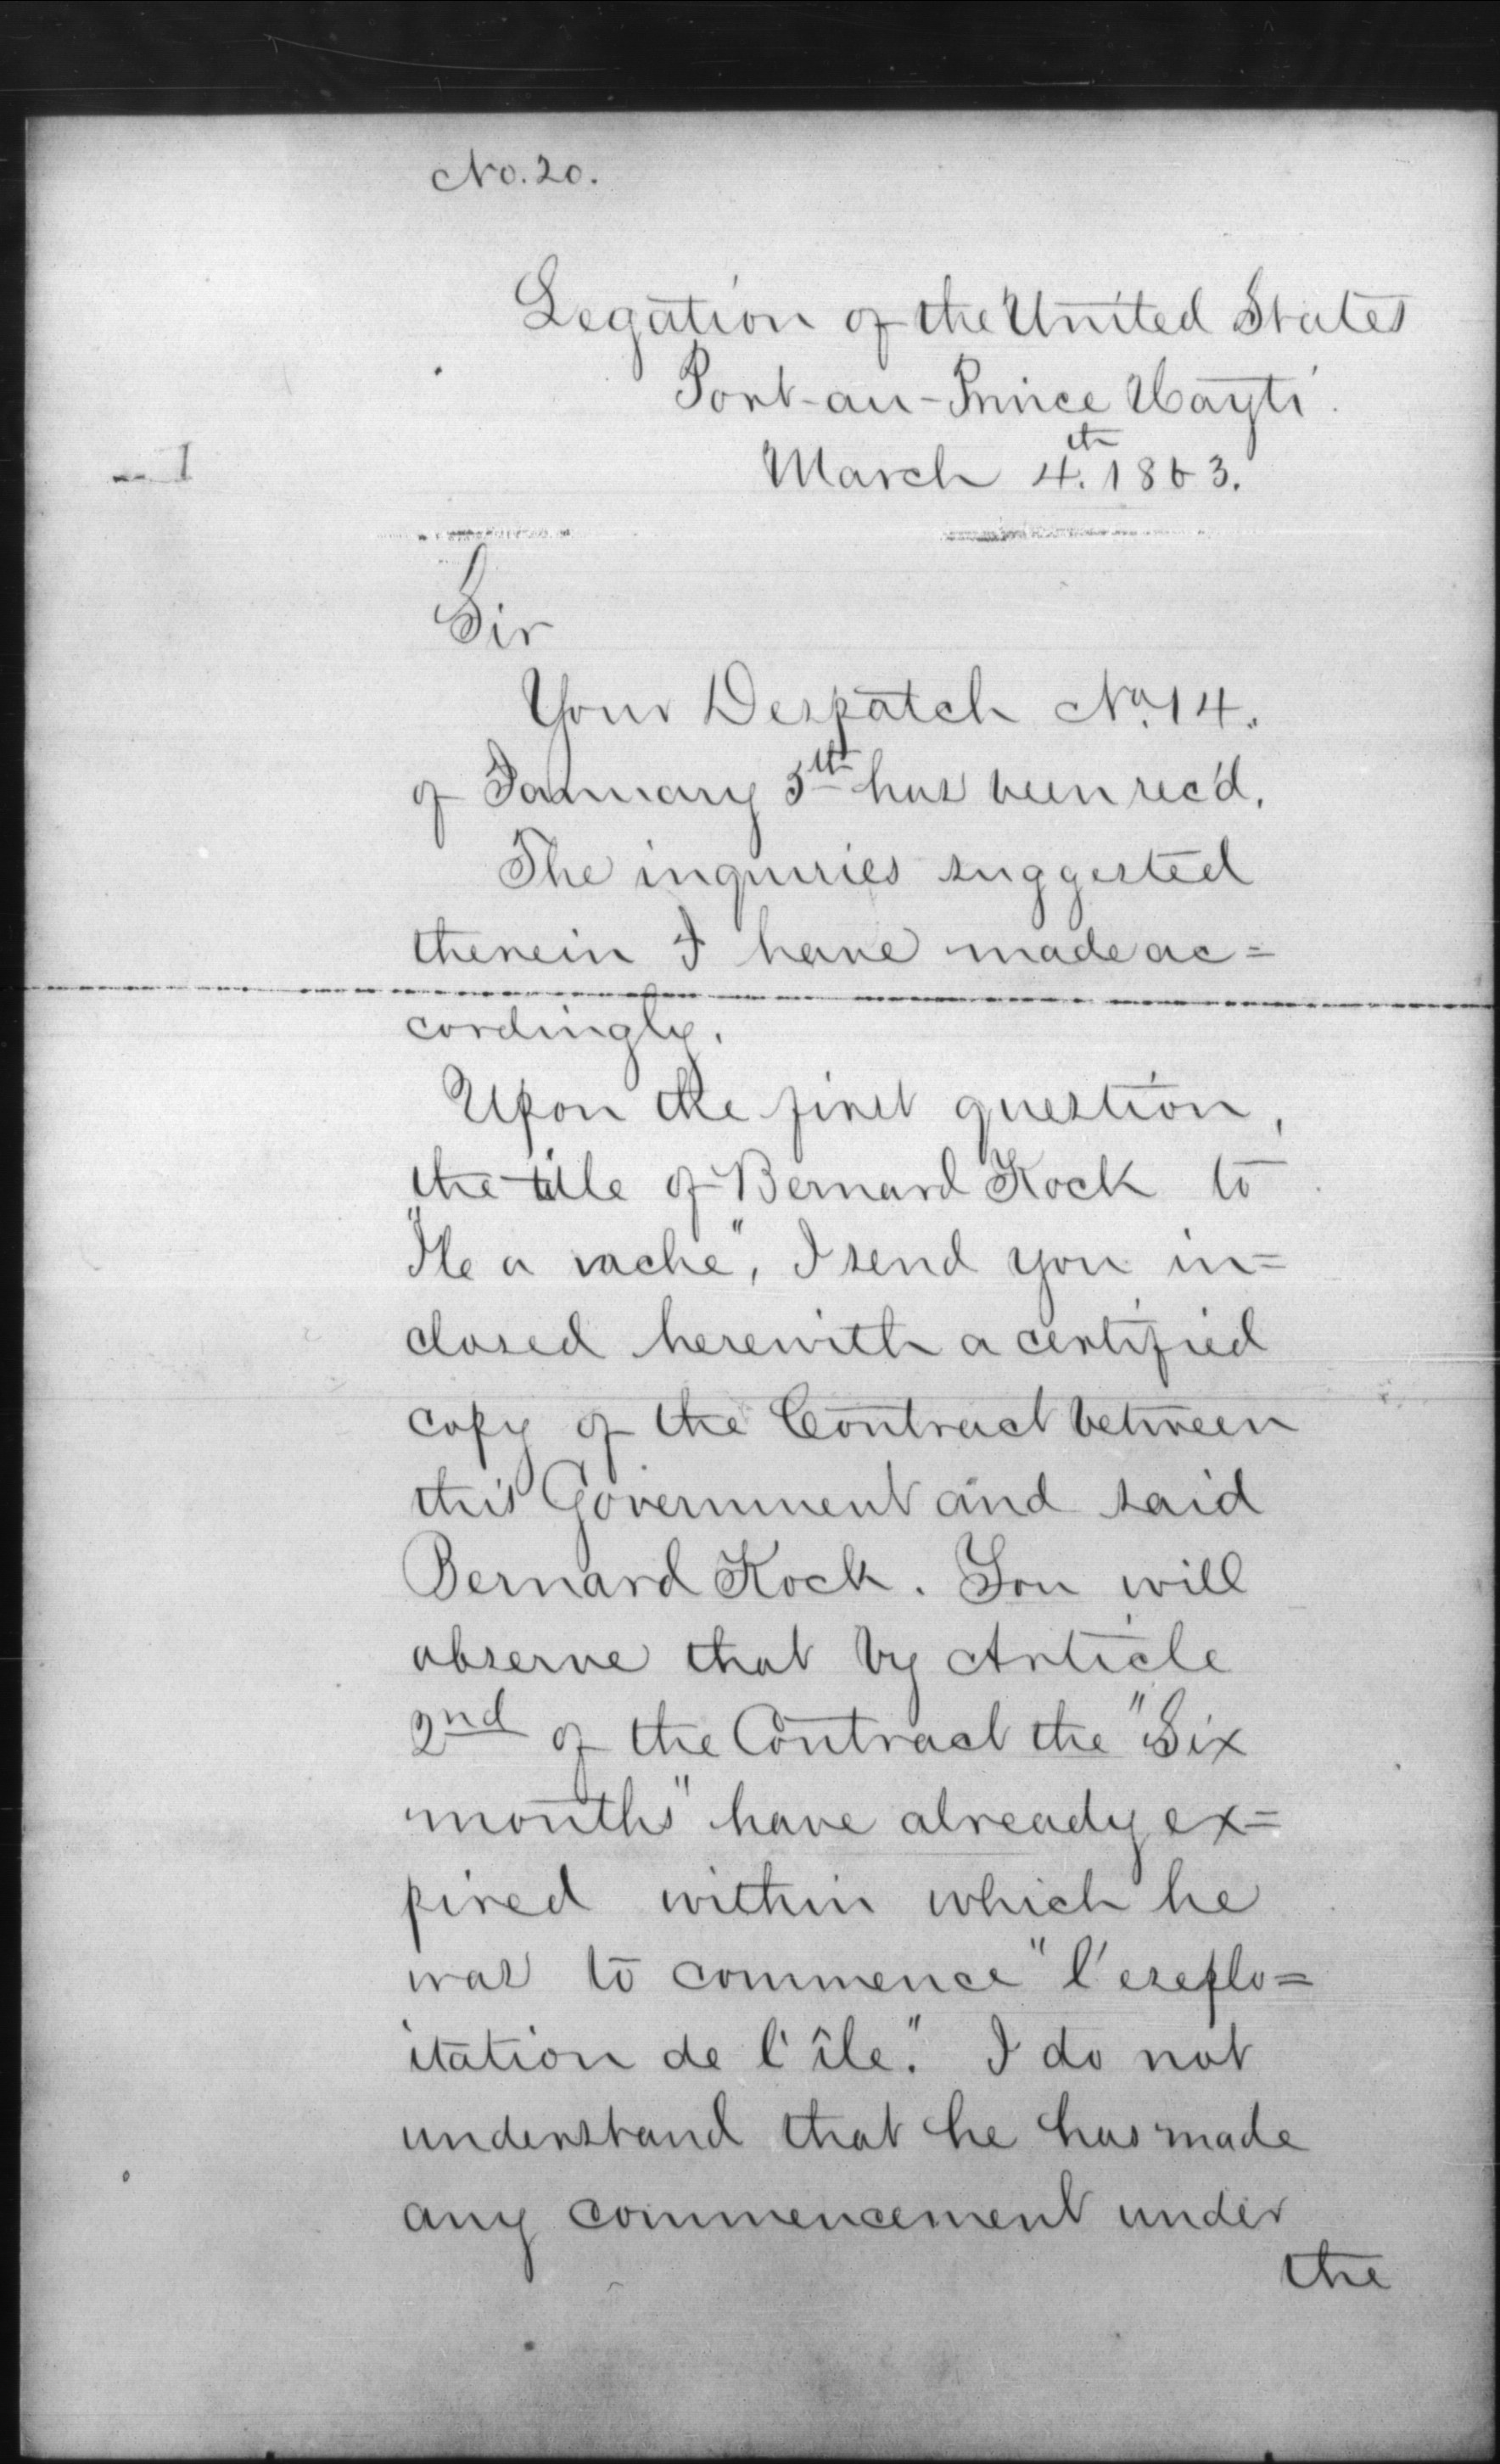 No. 20.
Legation of the United States
Port-au-Prince Hayti
March 4.th 1863.
Sir
Your Despatch No. 14.
of January 5th has been rec'd.
The inquiries suggested
therein I have made ac=
cordingly.
Upon the first question,
the title of Bernard Kock to
"Ile a vache", I send you in=
closed herewith a certified
copy of the Contract between
this Government and said
Bernard Kock. You will
observe that by Article
2nd of the Contract the "Six
months" have already ex=
pired within which he
was to commence "l'explo=
itation de l'île." I do not
understand that he has made
any commencement under
the